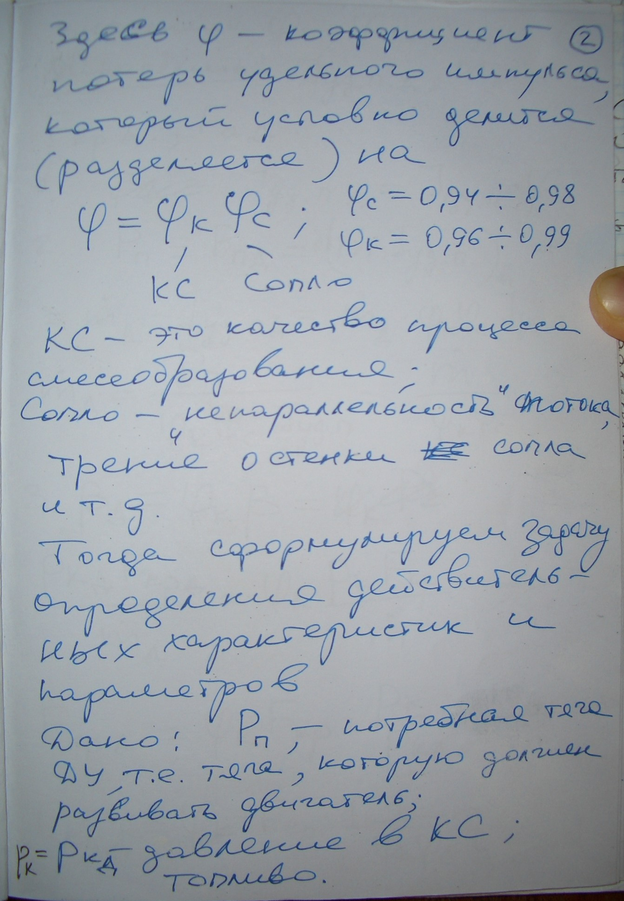 Здесь φ – коэффициент ②
потерь удельного импульса,
который условно делится
(разделяется) на
φ = φк φс ; φс = 0,94 ÷ 0,98
φк = 0,96 ÷ 0,99
КС Сопло
КС – это качество процесса
смесеобразования;
Сопло – "непараллельность" потока,
трение о стенки сопла
и т.д.
Тогда сформулируем задачу
определения действитель-
ных характеристик и
параметров
Дано: Pп, – потребная тяга
ДУ, т.е. тяга, которую должен
развивать двигатель;
Pк = Pкд – давление в КС;
топливо.